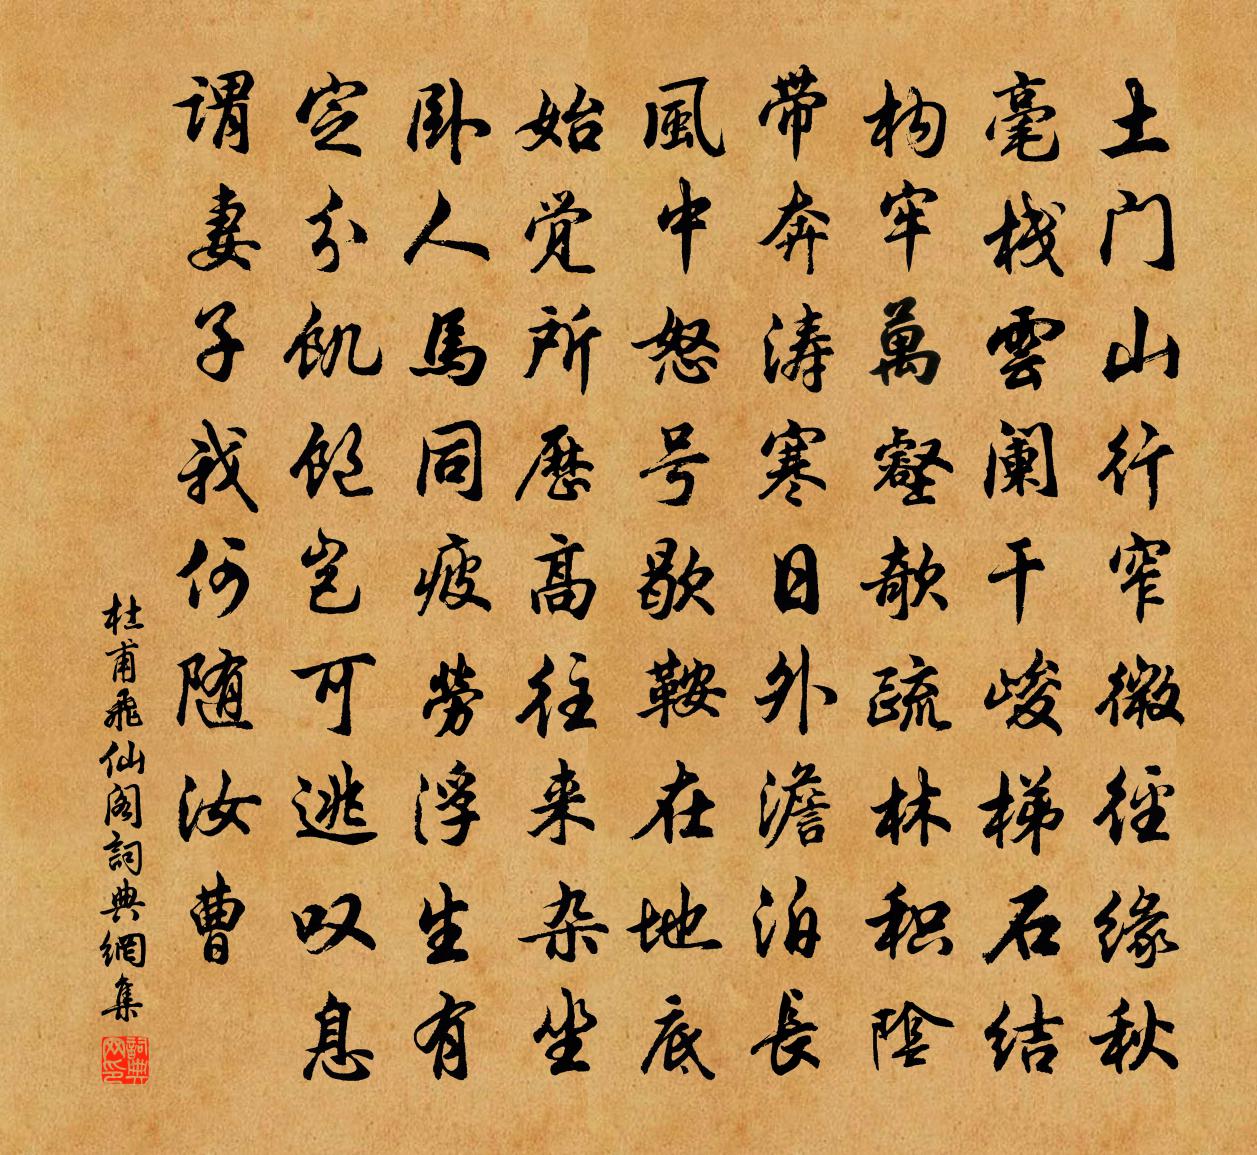 土门山行窄微徑缘秋
毫栈雲阑干峻梯石结
构牢萬壑欹疏林积陰
带奔涛寒日外澹泊長
風中怒号歇鞍在地底
始觉所歷高往来杂坐
卧人馬同疲勞浮生有
定分飢飽岂可逃叹息
谓妻子我何随汝曹
杜甫飛仙阁詞典網集
詞典网印